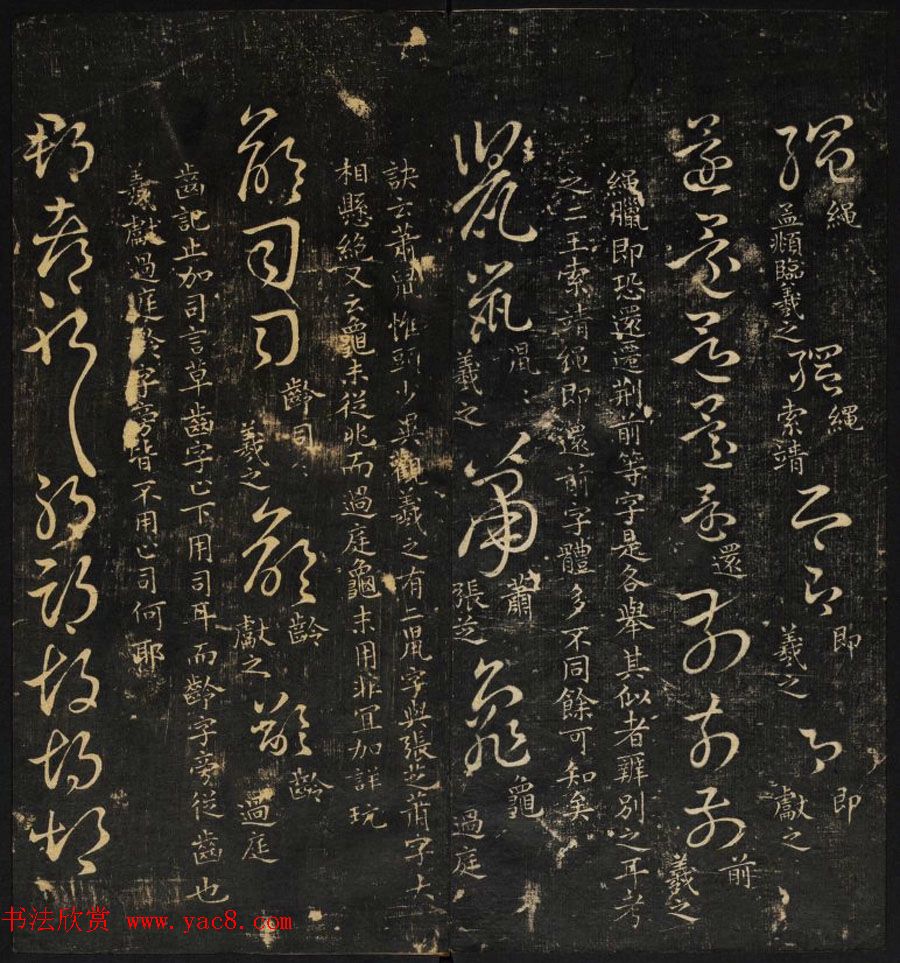 繩 繩 孟頫臨羲之 繩 繩 索靖 即即 即 羲之 即 即 獻之
還還還還還 還 前前前 前 羲之
繩臘即恐還遷荆前等字是各舉其似者辨別之耳考
之二王索靖繩即還前字體多不同餘可知矣
羲之 蕭 蕭 張芝 龜 龜 過庭
訣云蕭鼠惟頭少異觀羲之有二鼠字與張芝蕭字大
相懸絕又云龜未從兆而過庭龜末用非宜加詳玩
齡司司 齡司〻 羲之 齡 齡 獻之 齡 齡 過庭
齒記止加司言草齒字止下用司耳而齡字旁從齒也
羲獻過庭於字旁皆不用止司何耶
书法欣赏 www.yac8.com